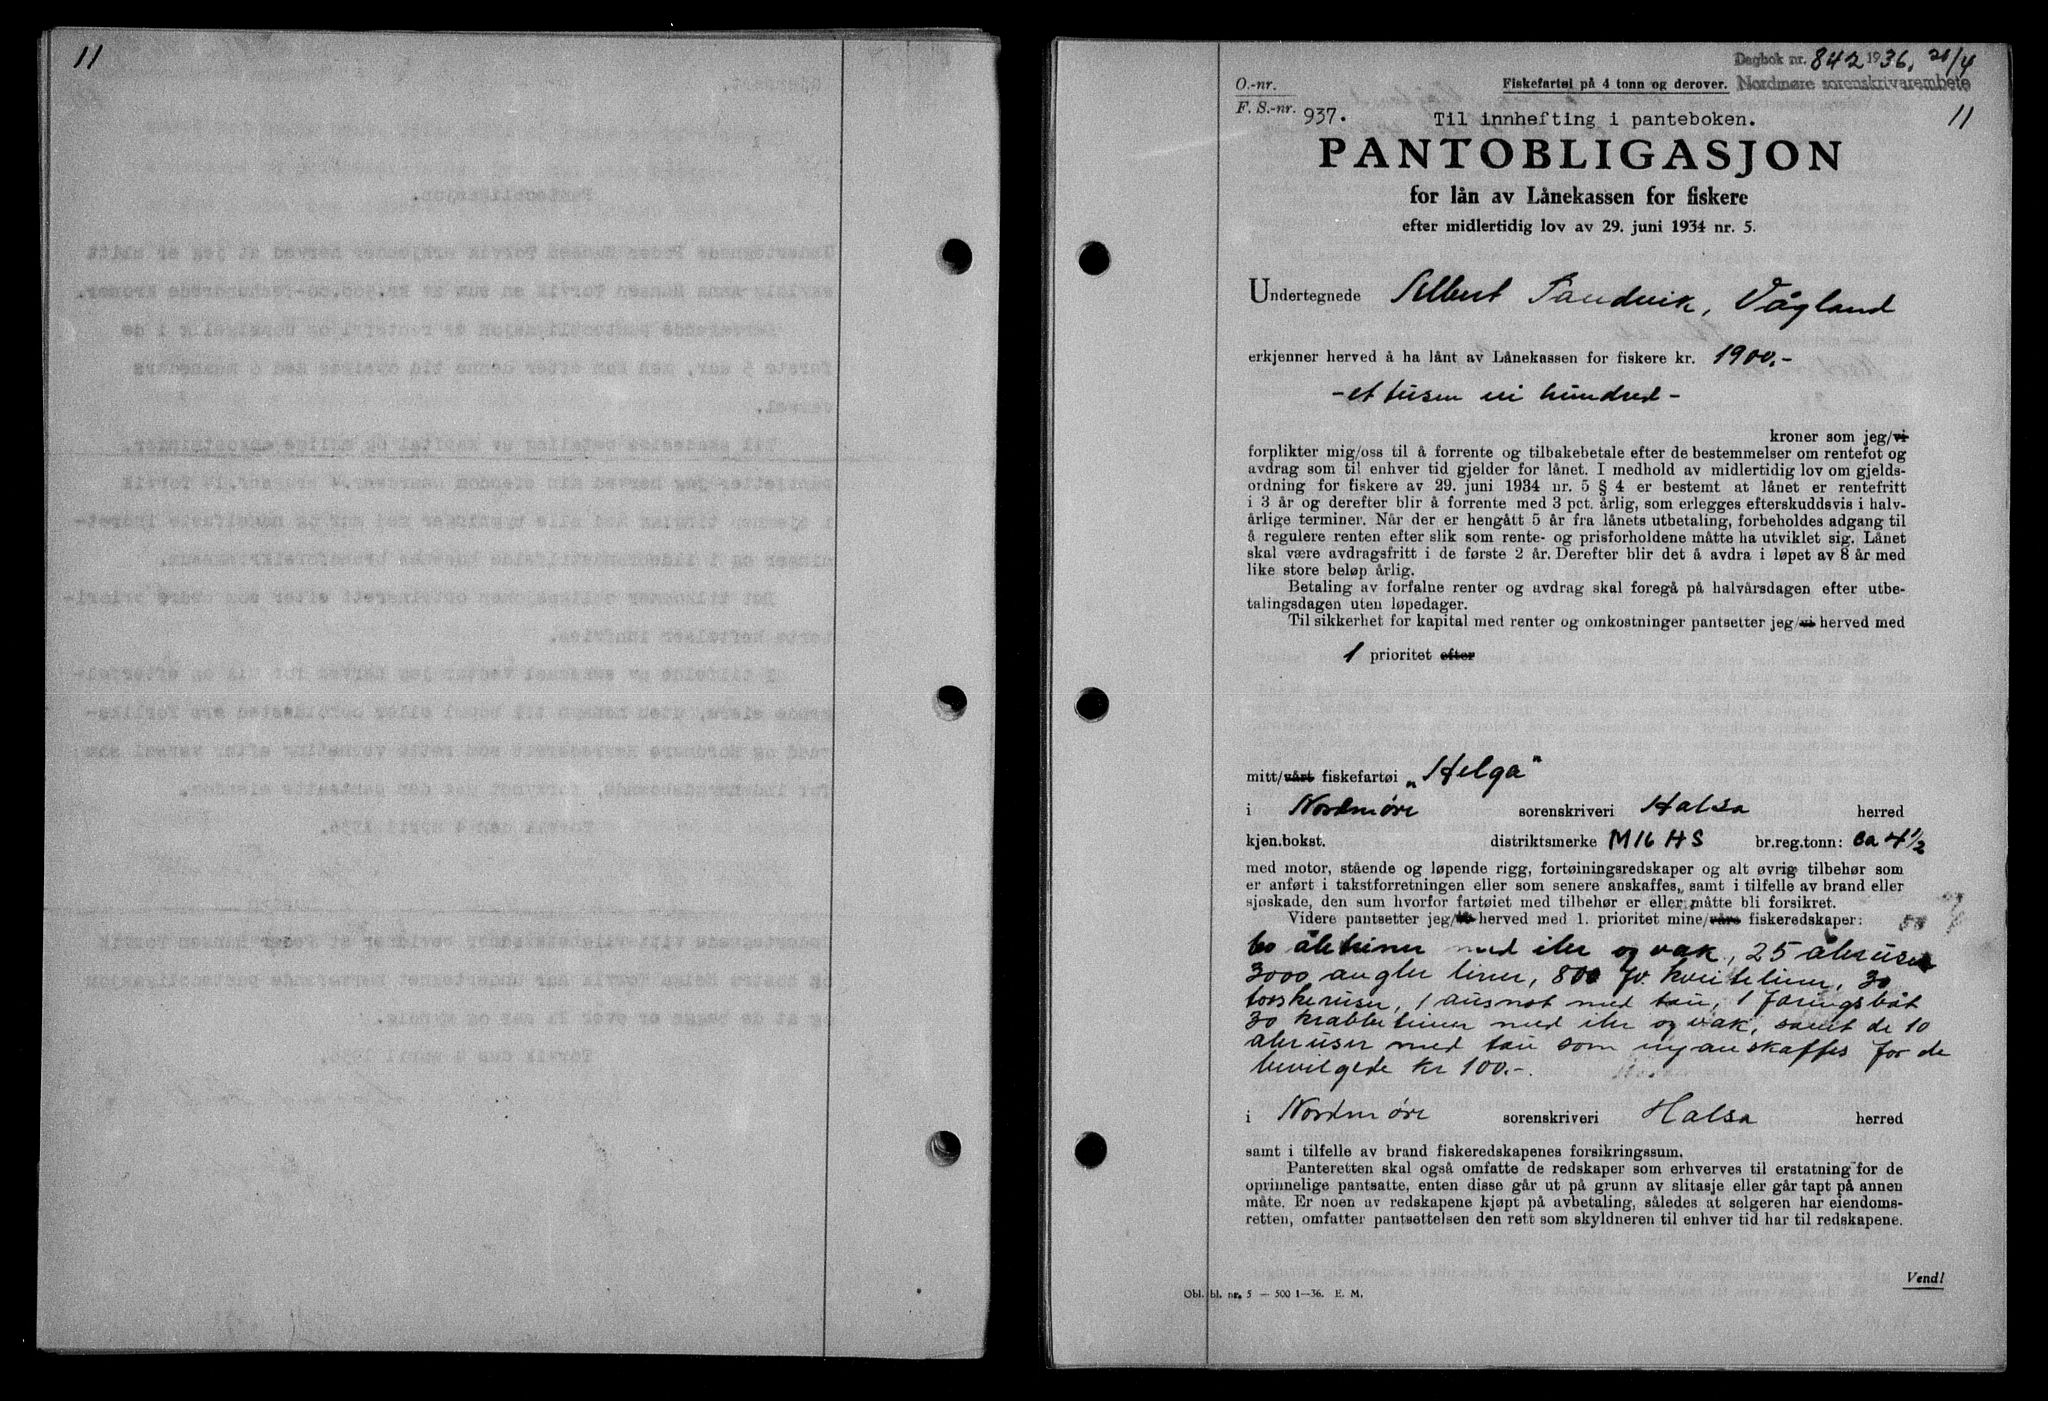 11
Dagbok nr. 842 1936, 20/4
O.-nr.
Fiskefartøi på 4 tonn og derover.
Nordmøre sorenskrivarembete
F. S.-nr. 937.
Til innhefting i panteboken.
11
PANTOBLIGASJON
for lån av Lånekassen for fiskere
efter midlertidig lov av 29. juni 1934 nr. 5.
Undertegnede Albert Sandvik, Vågland
erkjenner herved å ha lånt av Lånekassen for fiskere kr. 1900,-
- et tusen ni hundred -
kroner som jeg/vi
forplikter mig/oss til å forrente og tilbakebetale efter de bestemmelser om rentefot og
avdrag som til enhver tid gjelder for lånet. I medhold av midlertidig lov om gjelds-
ordning for fiskere av 29. juni 1934 nr. 5 § 4 er bestemt at lånet er rentefritt
i 3 år og derefter blir å forrente med 3 pct. årlig, som erlegges efterskuddsvis i halv-
årlige terminer. Når der er hengått 5 år fra lånets utbetaling, forbeholdes adgang til
å regulere renten efter slik som rente- og prisforholdene måtte ha utviklet sig. Lånet
skal være avdragsfritt i de første 2 år. Derefter blir det å avdra i løpet av 8 år med
like store beløp årlig.
Betaling av forfalne renter og avdrag skal foregå på halvårsdagen efter utbe-
talingsdagen uten løpedager.
Til sikkerhet for kapital med renter og omkostninger pantsetter jeg/vi herved med
1 prioritet efter
mitt/vårt fiskefartøi „Helga"
i Nordmøre sorenskriveri Halsa herred
kjen.bokst. distriktsmerke M16HS br.reg.tonn: ca 4½
med motor, stående og løpende rigg, fortøiningsredskaper og alt øvrig tilbehør som
er anført i takstforretningen eller som senere anskaffes, samt i tilfelle av brand eller
sjøskade, den sum hvorfor fartøiet med tilbehør er eller måtte bli forsikret.
Videre pantsetter jeg/vi herved med 1. prioritet mine/våre fiskeredskaper: 50
60 åleteiner med iler og vak, 25 åleruser
3000 angler liner, 800 fv. kveiteliner, 30
torskeruser, 1 ausnot med tau, 1 føringsbåt
30 krabbeteiner med iler og vak, samt de 10
åleruser med tau som nyanskaffes for de
bevilgede kr 100.-
i Nordmøre sorenskriveri Halsa herred
samt i tilfelle av brand fiskeredskapenes forsikringssum.
Panteretten skal også omfatte de redskaper som erhverves til erstatning for de
oprinnelige pantsatte, enten disse går ut på grunn av slitasje eller går tapt på annen
måte. Er noen av redskapene kjøpt på avbetaling, således at selgeren har eiendoms-
retten, omfatter pantsettelsen den rett som skyldneren til enhver tid har til redskapene.
Vend!
Obl. bl. nr. 5 — 500 1—36. E. M.